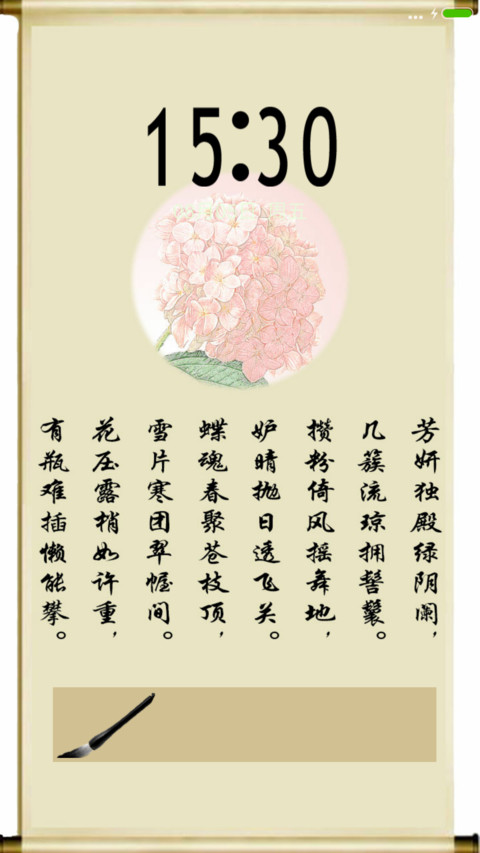 15:30
芳妍独殿绿阴阑，
几簇流琼拥髻鬟。
攒粉倚风摇舞地，
妒晴抛日透飞关。
蝶魂春聚苍枝顶，
雪片寒团翠幄间。
花压露梢如许重，
有瓶难插懒能攀。